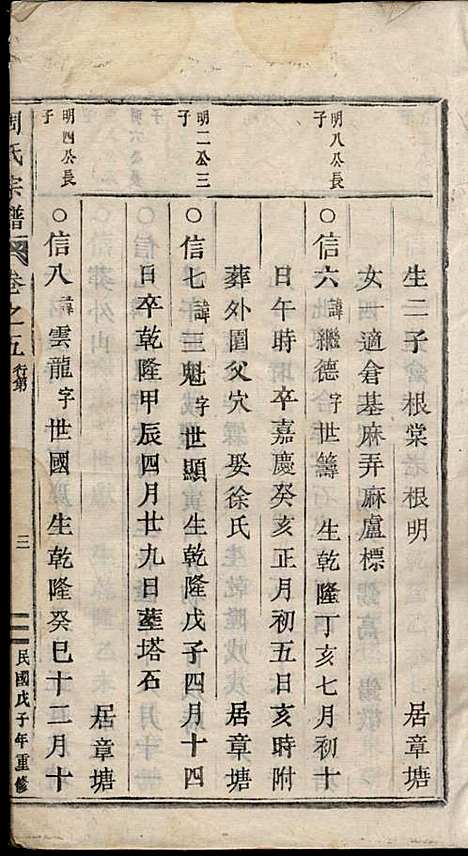 生二子 根棠 根明 居章塘
女一適倉基麻弄麻盧標
明八公長子
○信六諱繼德字世籌 生乾隆丁亥七月初十
日午時卒嘉慶癸亥正月初五日亥時附
葬外圍父穴 娶徐氏 居章塘
明二公三子
○信七諱三魁字世顯 生乾隆戊子四月十四
日卒乾隆甲辰四月廿九日塟塔石 居章塘
明四公長子
○信八諱雲龍字世國 生乾隆癸巳十二月十
周氏宗譜 卷之五 行第 三 民國戊子年重修